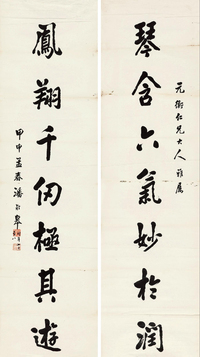 元衡仁兄大人雅属
琴含六氣妙於潤
鳳翔千仞極其遊
甲申孟春潘齡皋